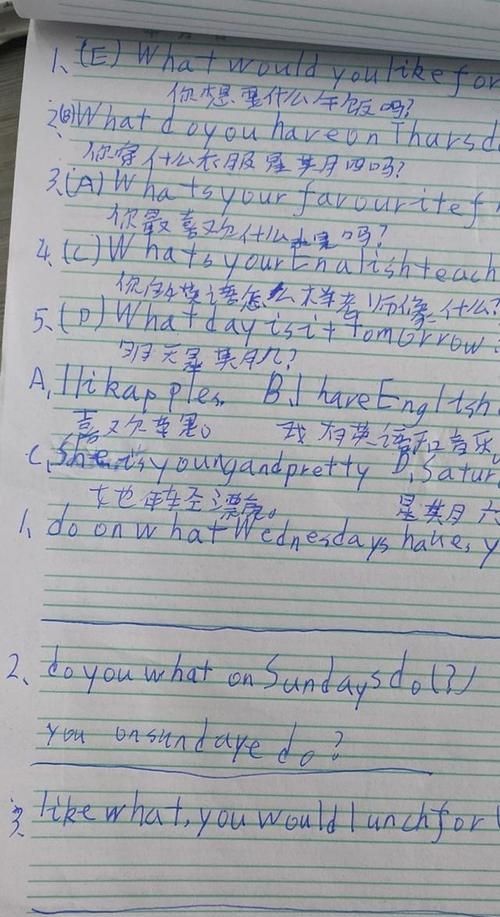 1、(E) What would you like for
你想要什么午饭吗?
2、(B) What do you have on Thursd
你穿什么衣服星期四吗?
3、(A) Whats your favourite f
你最喜欢什么水果吗?
4、(C) Whats your English teach
你的英语怎么样老师像什么?
5、(D) What day is it tomorrow
明天星期几?
A、I likapples. B、I have English
喜欢苹果。 我有英语和音乐。
C、She is young and pretty D、Satur
她年轻漂亮。 星期六
1、do on what Wednesdays have, y
2、do you what on Sundays do (?)
you on sundaye do?
3、like what, you would lunch for